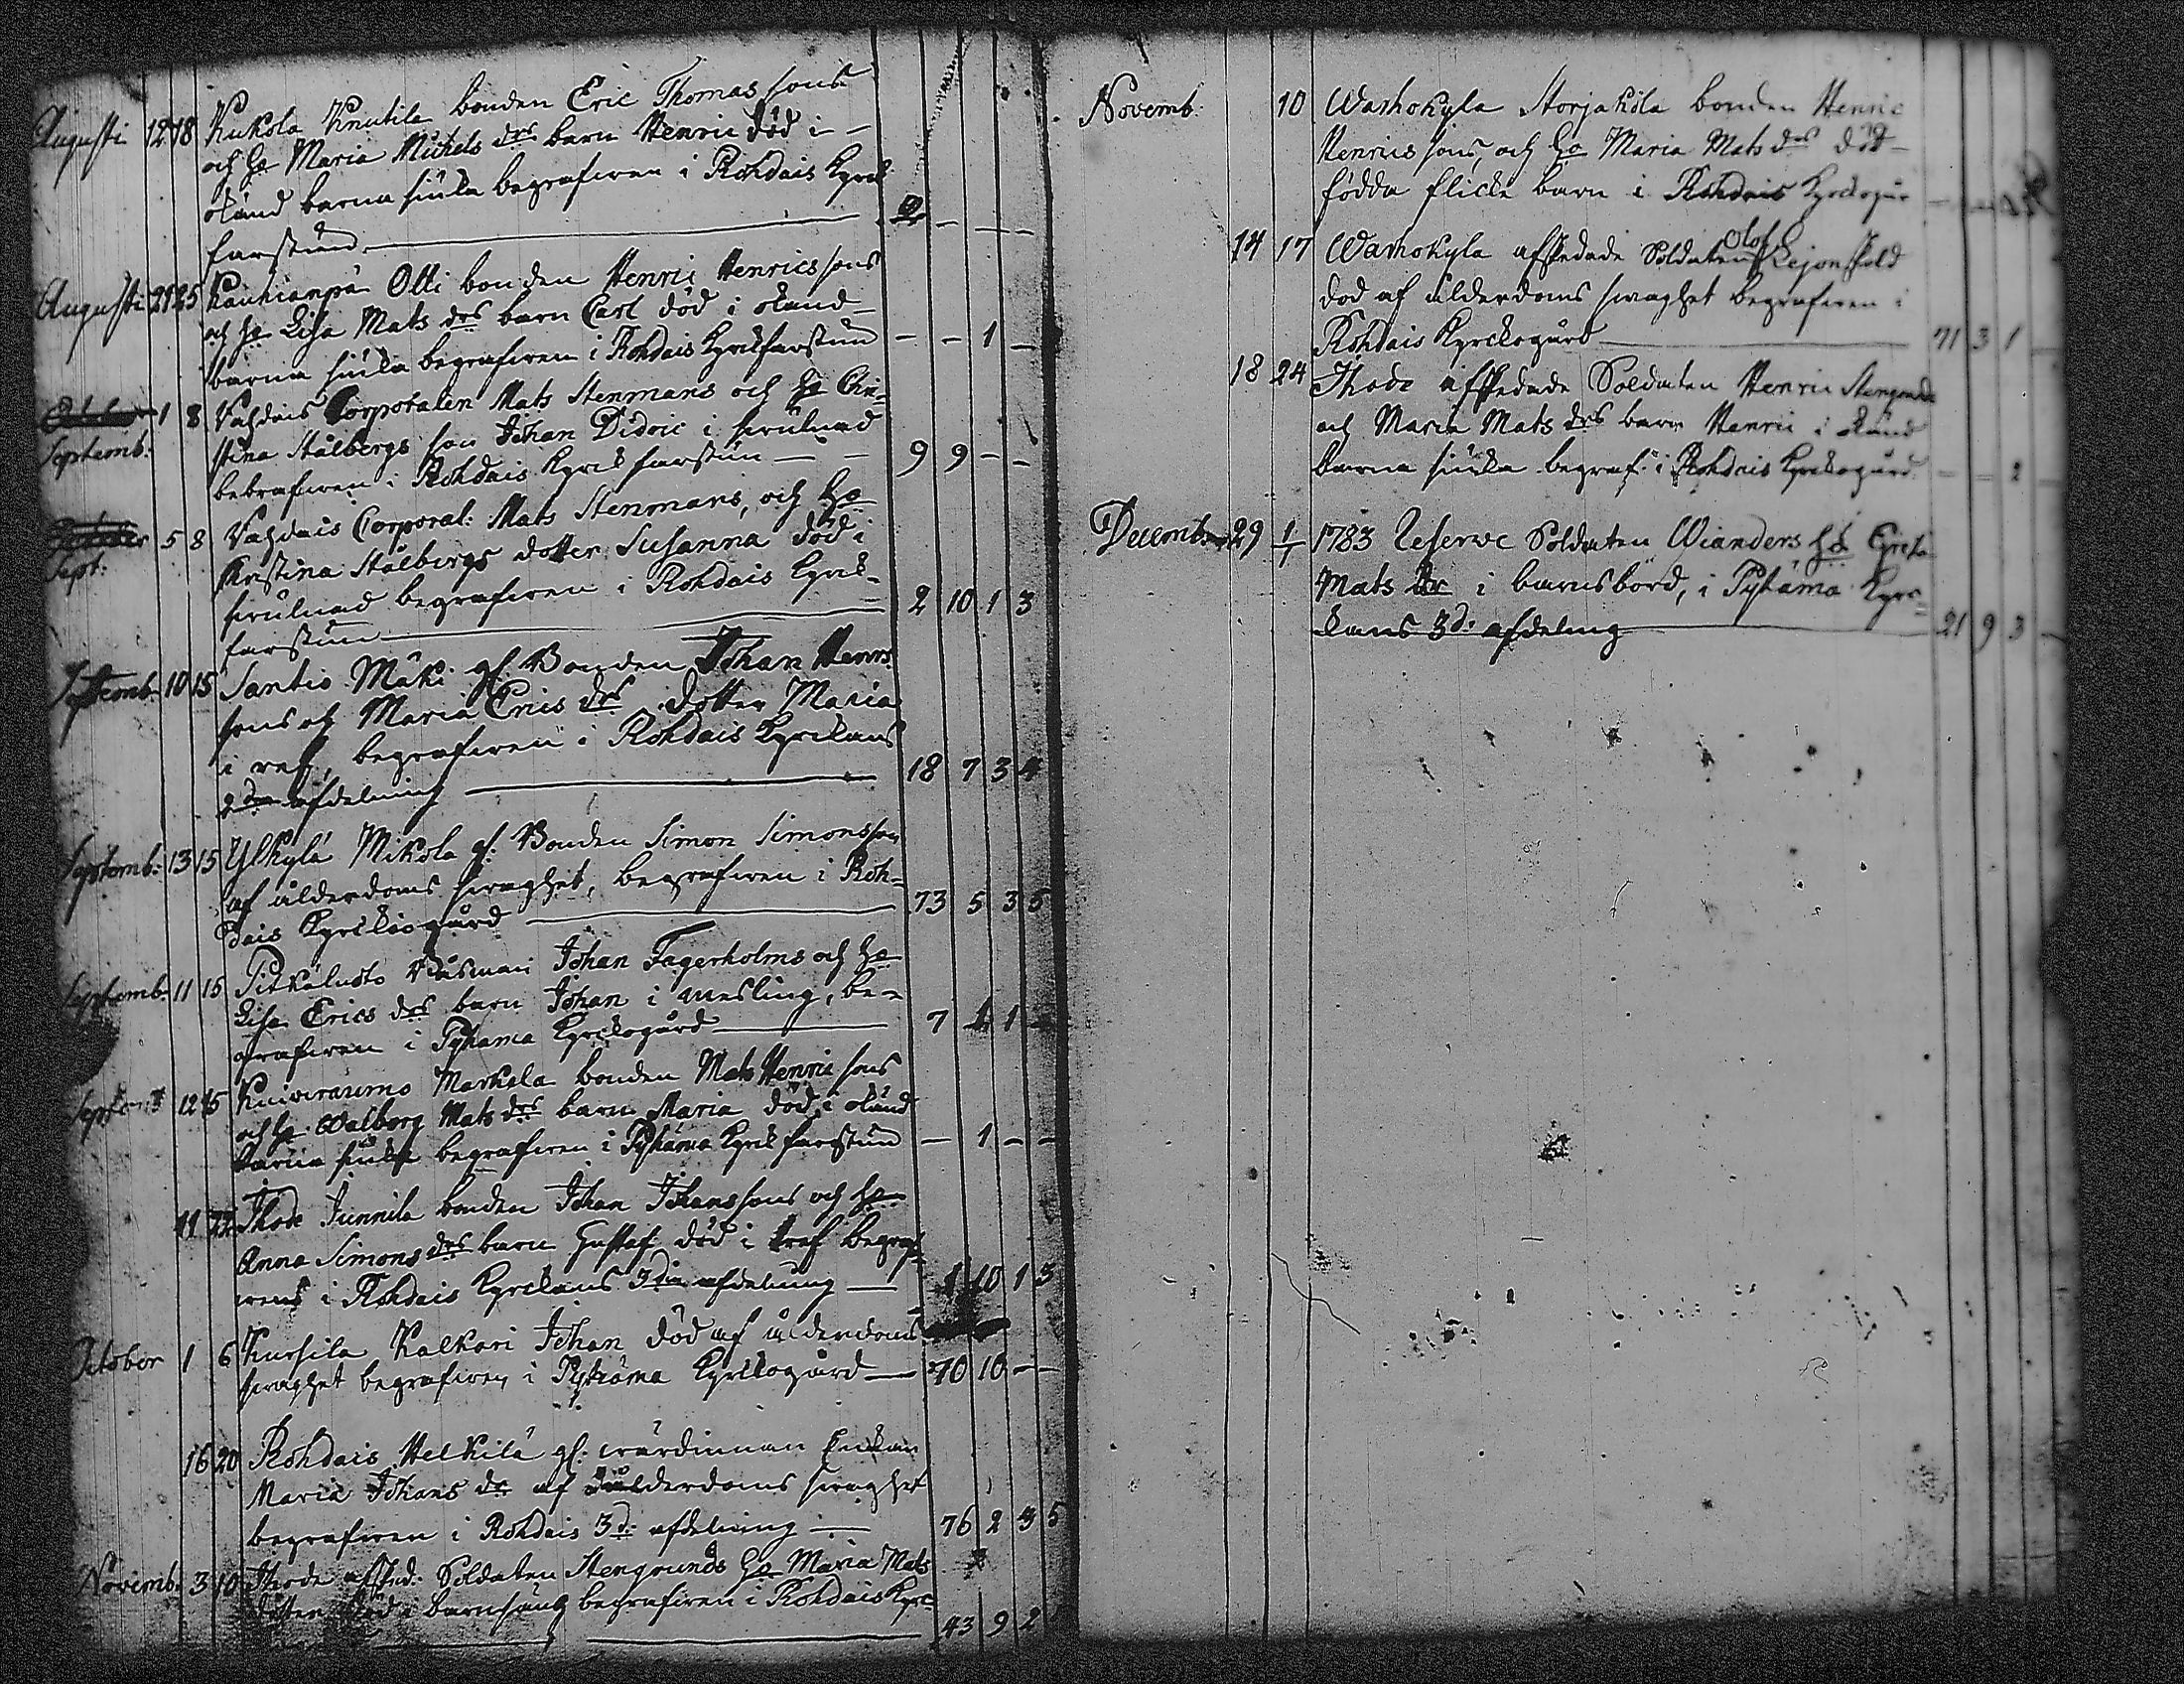 Augusti 12 18 Kukola Knutila bonden Eric Thomas sons
och ho Maria Michels drs barn Henric död i
okänd barna siuka begrafwen i Rohdais Kyrck
farstun
Augusti 21 25 Kauhianpä Olli bonden Henric Henrics sons
och ho Lisa Mats drs barn Carl död i okänd
barna siuka begrafwen i Rohdais Kyrckfarstun — — 1 —
1 8 Corporalen Mats Stenmans och ho Chri-
Septemb: stina Stålbergs son Johan Didric i
bebrafwen i Rohdais Kyrck farstun — 9 9 — —
5 8 Corporal: Mats Stenmans, och ho
Sept: Christina Stålbergs dotter Susanna död i
begrafwen i Rohdais Kyrck-
farstun 2 10 1 3
Septemb: 10 15 Santio Mäki gl. Bonden Johan Henrs
sons och Maria Erics drs dotter Maria
i ref, begrafwen i Rohdais Kyrckans
afdelning 18 7 3 4
Septemb: 13 15 Ylikylä Mikola gl: Bonden Simon Simonsson
af ålderdoms swaghet, begrafwen i Roh-
dais Kyrckiogård 73 5 3 5
Septemb: 11 15 Pitkäluoto Johan Fagerholms och ho
Lisa Erics drs barn Johan i mesling, be-
grafwen i Pyhäma Kyrckogård 7 1 1 —
12 15 Kuiwiraumo Markala bonden Mats Henric sons
och ho Walborg Mats drs barn Maria död i okänd
barna siuka begrafwen i Pyhäma Kyrck farstun — 1 — —
11 22 Ihode Junnila bonden Johan Johanssons och ho
Anna Simons drs barn Gustaf död i ref begraf-
wens i Rohdais Kyrckans 3die afdelning — 1 10 1 3
October 1 6 Kursila Kalkari Johan död af ålderdoms
swaghet begrafwen i Pyhäma Kyrckogård — 70 10 — —
16 20 Rohdais Helkilä gl. wärdinnan Enckan
Maria Johans dr af ålderdoms swaghet
begrafwen i Rohdais 3d: afdelning — 76 2 3 5
Novemb: 3 10 Ihode afsked: Soldaten Stengrunds ho Maria Mats
dotter död i barnsäng begrafwen i Rohdais Kyrc-
43 9 2
Novemb: 10 Warhokyla Storjakola bonden Henric
Henrics sons, och ho Maria Mats drs död-
födda flicke barn i Rohdais Kyrckogår
14 17 Warhokyla afskedade Soldaten Olof Lejonsköld
död af ålderdoms swaghet begrafwen i
Rohdais Kyrckogård 71 3 1 —
18 24 Ihode afskedade Soldaten Henric Stengrunds
och Maria Mats drs barn Henric i okänd
barna siuka begraf: i Rohdais Kyrckogård — — 2 —
Decemb: 29 1/1 1783 Reserwe Soldaten Wianders ho Greta
Mats dr i barnsbörd, i Pyhäma Kyrc-
kans 3d: afdelning 21 9 3 —